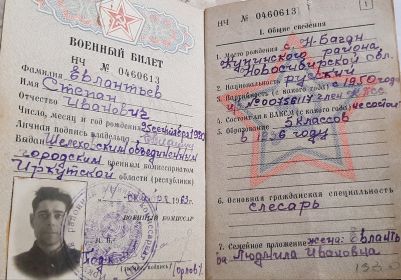 ВОЕННЫЙ БИЛЕТ
НЧ № 0460613
Фамилия Евлантьев
Имя Степан
Отчество Иванович
Число, месяц и год рождения
Личная подпись владельца
Выдан Шелеховским объединенным
городским военным комиссариатом
Иркутской области (республики)
ВОЕННЫЙ КОМИССАР
(Орлов)
НЧ № 0460613
1
I. Общие сведения
1. Место рождения с. Н-Баган
Купинского района
Новосибирской обл.
2. Национальность русский
3. Партийность (с какого года) с 1950 год
член КПСС
4. Состоял ли в ВЛКСМ (с какого года) не состоял
5. Образование 5 классов
в 1936 году
6. Основная гражданская специальность
слесарь
7. Семейное положение жена: Евланть
ва Людмила Ивановна